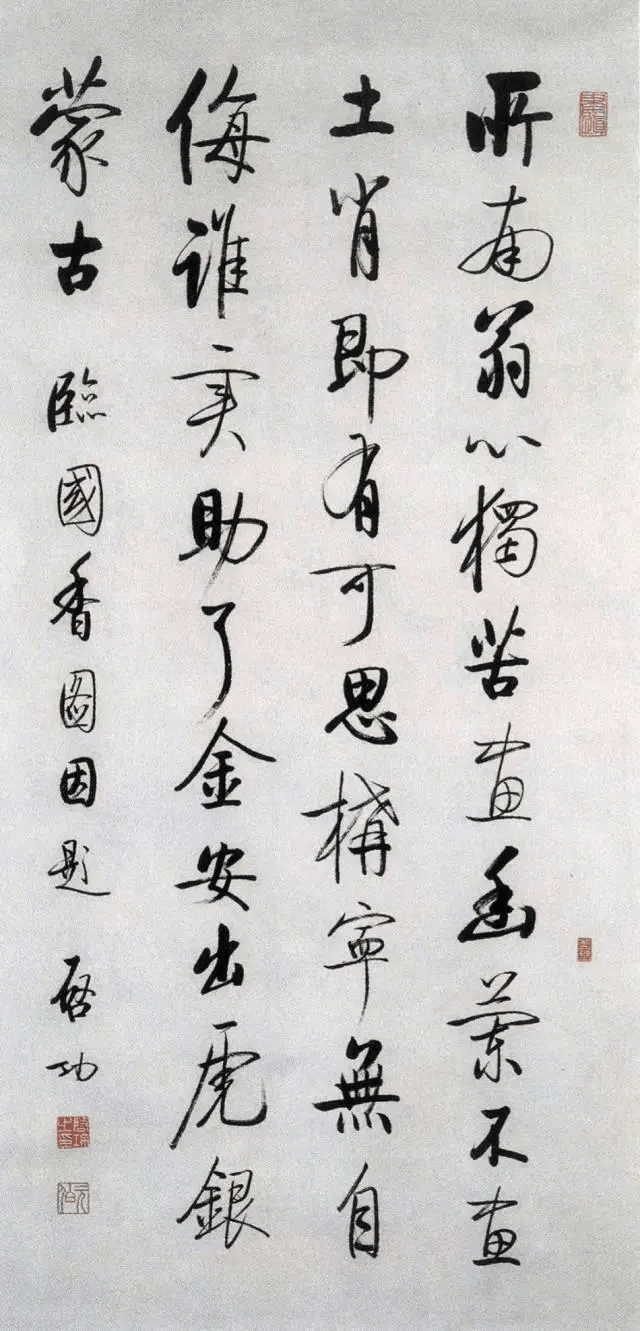 所南翁心獨苦画幽蘭不画
土肖即有可思構寧無自
侮誰实助了金安出虎銀
蒙古 臨國香圖因題 啓功